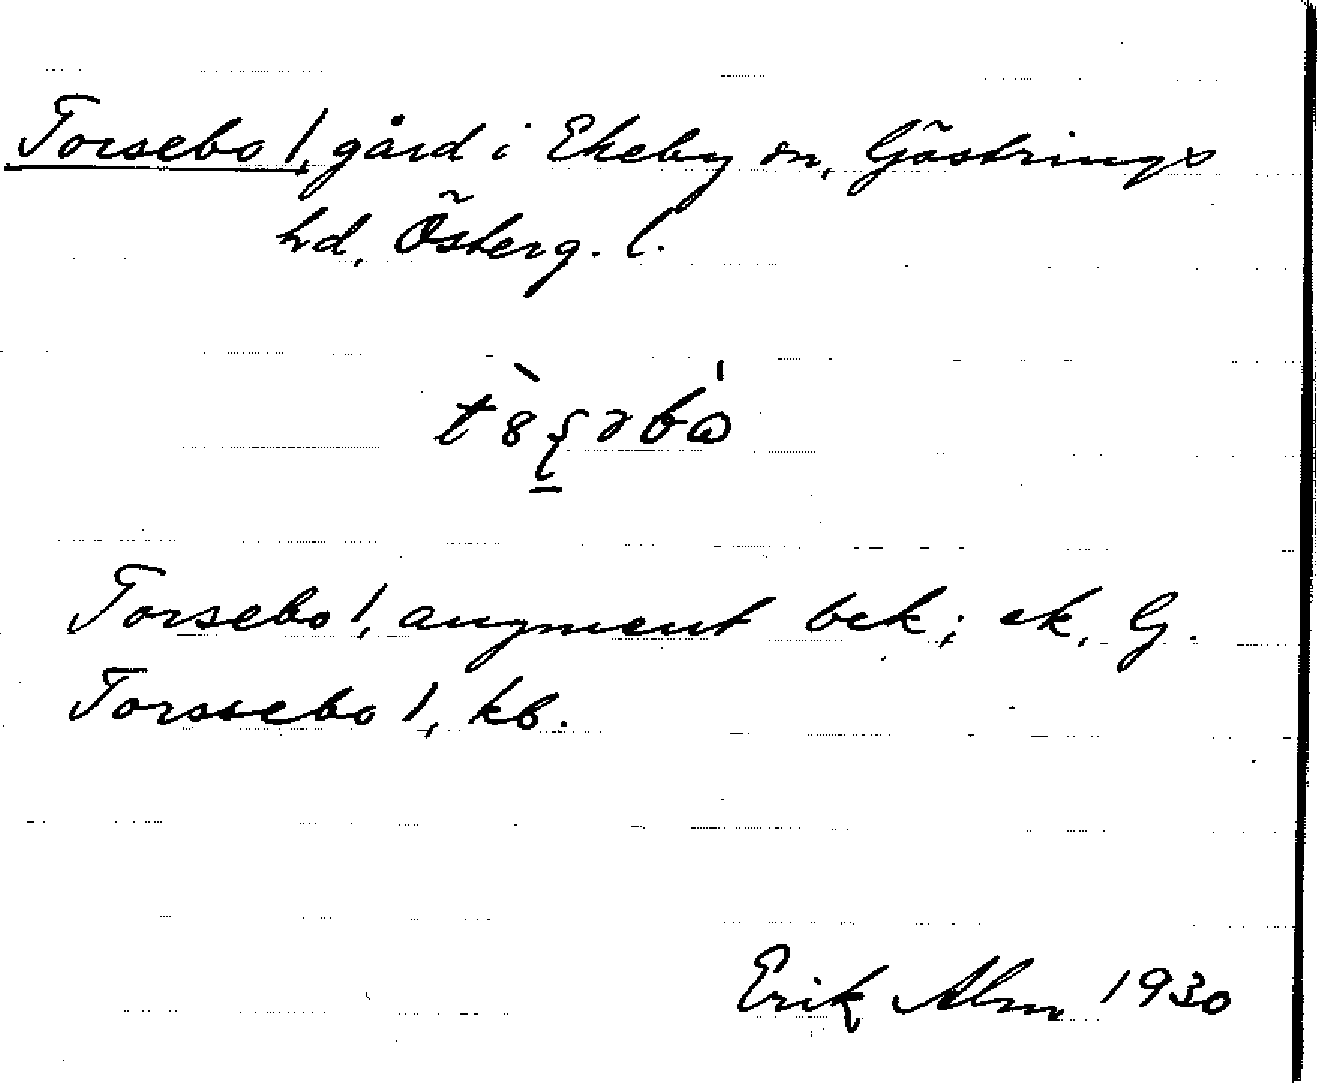 Torsebo 1, gård i Ekeby sn, Göstrings
hd, Österg. l.
Torsebo 1, augment bek; ek. G.
Torssebo 1, kb.
Erik Alm 1930